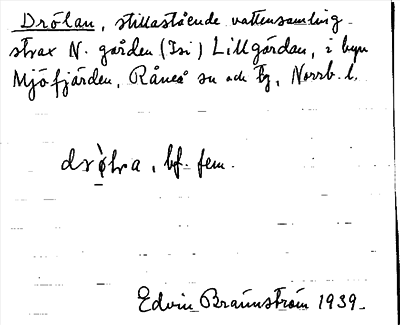 Drölan, stillastående vattensamling
strax N. gården (Isi) Lillgårdan, i byn
Mjöfjärden, Råneå sn och tg, Norrb. l.
drö̀la, bf. fem.
Edvin Brännström 1939.